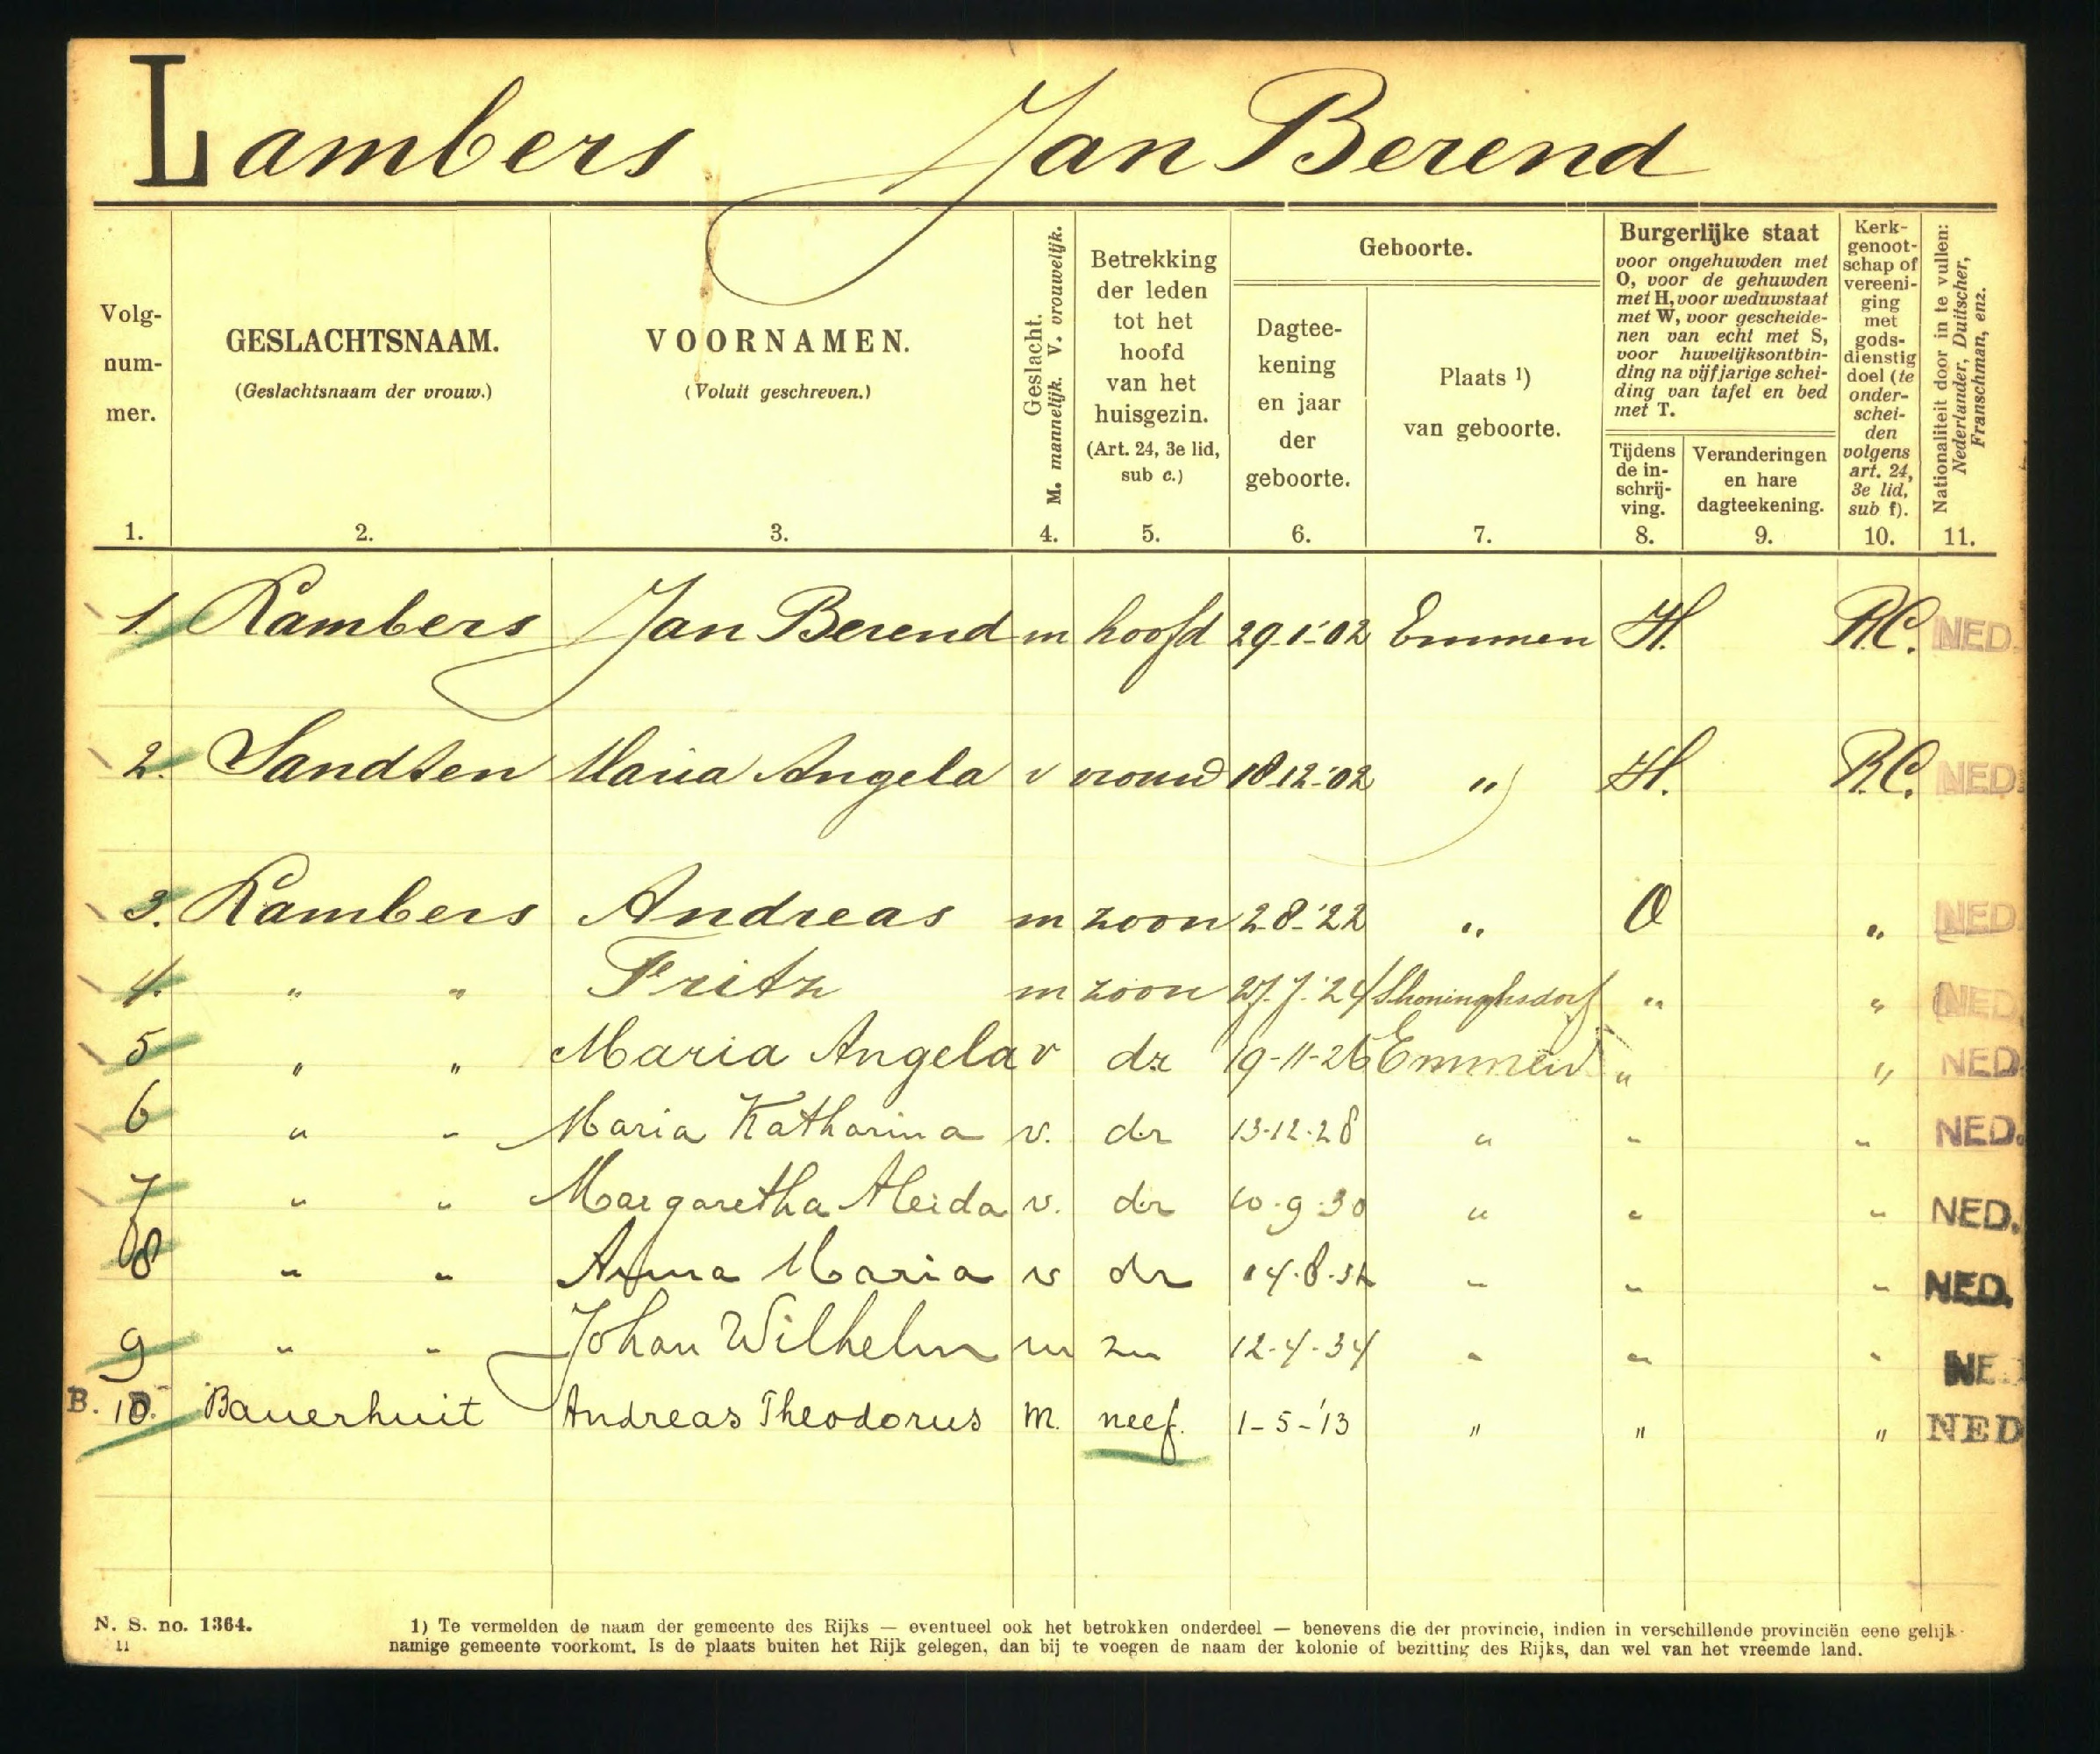 Lambers Jan Berend
Volg-
num-
mer.
1.
GESLACHTSNAAM.
(Geslachtsnaam der vrouw.)
2.
VOORNAMEN.
(Voluit geschreven.)
3.
Geslacht.
M. mannelijk. V. vrouwelijk.
4.
Betrekking
der leden
tot het
hoofd
van het
huisgezin.
(Art. 24, 3e lid,
sub c.)
5.
Geboorte.
Dagtee-
kening
en jaar
der
geboorte.
6.
Plaats 1)
van geboorte.
7.
Burgerlijke staat
voor ongehuwden met
O, voor de gehuwden
met H, voor weduwstaat
met W, voor gescheide-
nen van echt met S,
voor huwelijksontbin-
ding na vijfjarige schei-
ding van tafel en bed
met T.
Tijdens
de in-
schrij-
ving.
8.
Veranderingen
en hare
dagteekening.
9.
Kerk-
genoot-
schap of
vereeni-
ging
met
gods-
dienstig
doel (te
onder-
schei-
den
volgens
art. 24,
3e lid,
sub f).
10.
Nationaliteit door in te vullen:
Nederlander, Duitscher,
Franschman, enz.
11.
1. Lambers Jan Berend m hoofd 29-1-'02 Emmen H. R.C. NED.
2. Sandten Maria Angela v vrouw 18-12-'02 " H. R.C. NED.
3. Lambers Andreas m zoon 2-8-'22 " O " NED.
4. " " Fritz m zoon 27-7-'24 Shoninghsdorf " " NED.
5 " " Maria Angela v dr 19-11-26 Emmen " " NED.
6 " " Maria Katharina v. dr 13-12-28 " " " NED.
7 " " Margaretha Aleida v. dr 10-9-30 " " " NED.
8 " " Anna Maria v dr 14-8-32 " " " NED.
9 " " Johan Wilhelm m zn 12-4-34 " " " NE
B. 10. Bauerhuit Andreas Theodorus m. neef. 1-5-'13 " " " NED
N. S. no. 1364.
11
1) Te vermelden de naam der gemeente des Rijks — eventueel ook het betrokken onderdeel — benevens die der provincie, indien in verschillende provinciën eene gelijk-
namige gemeente voorkomt. Is de plaats buiten het Rijk gelegen, dan bij te voegen de naam der kolonie of bezitting des Rijks, dan wel van het vreemde land.